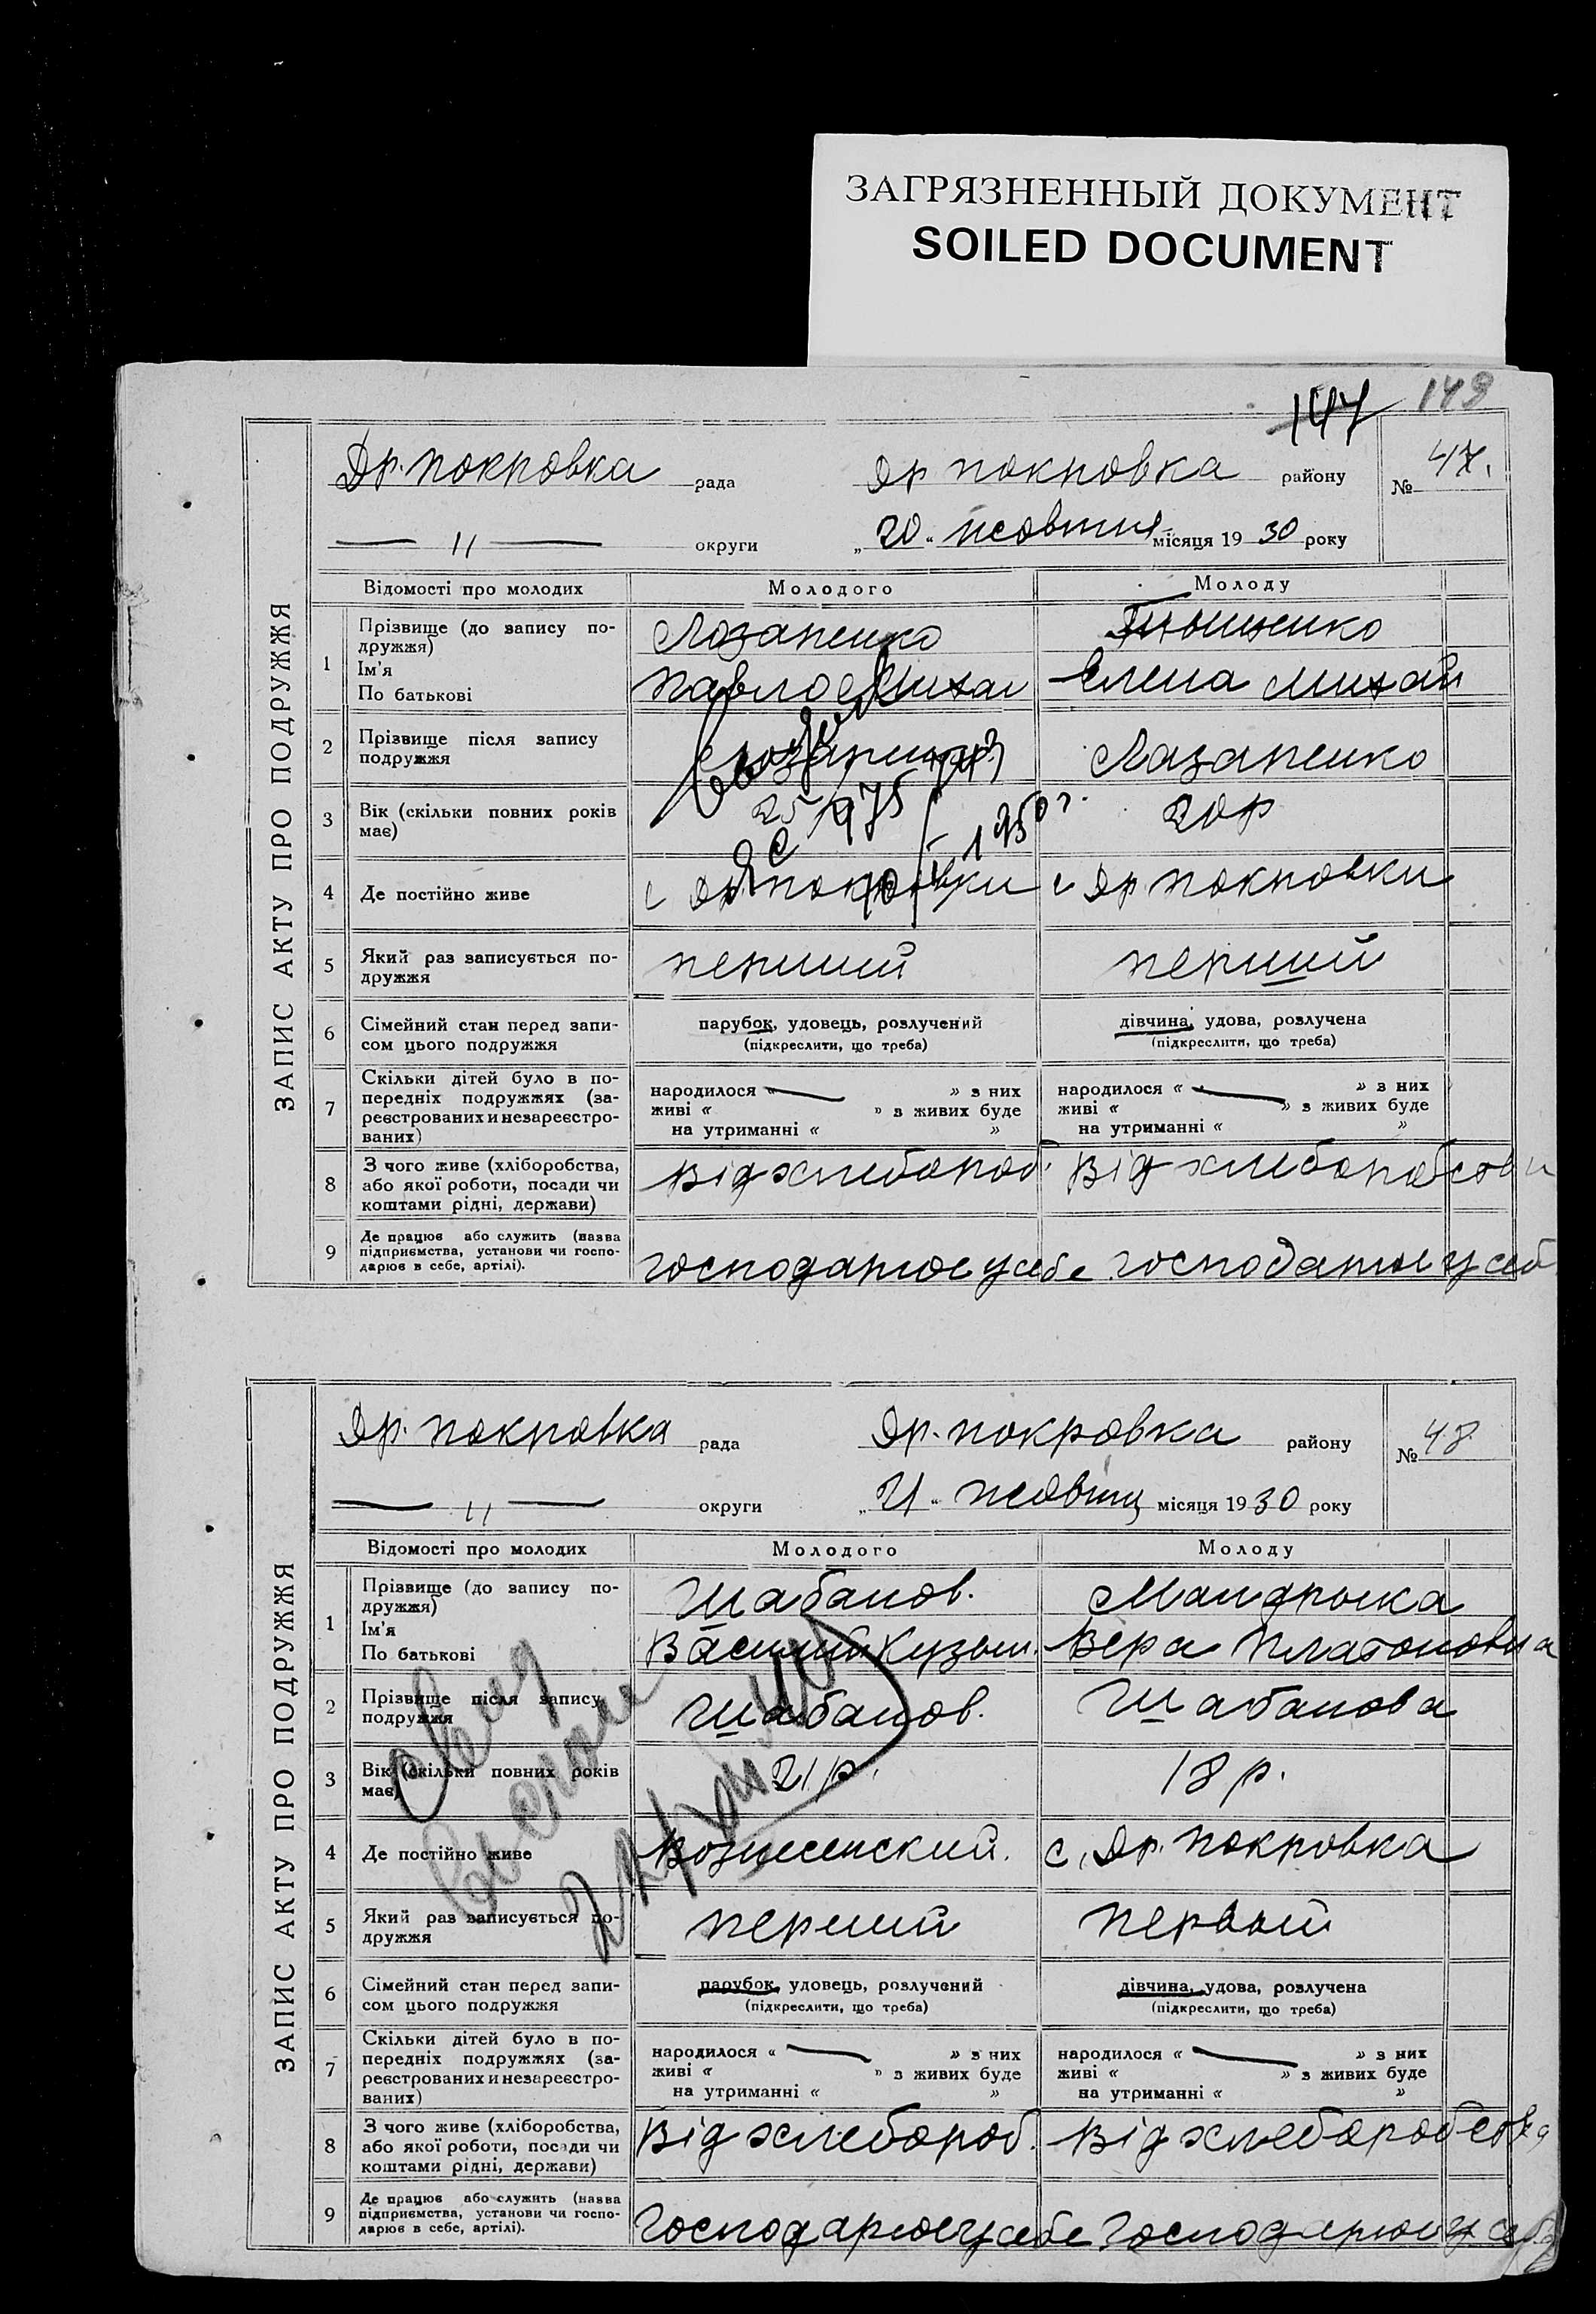 ЗАГРЯЗНЕННЫЙ ДОКУМЕНТ
SOILED DOCUMENT
147 149
ЗАПИС АКТУ ПРО ПОДРУЖЖЯ
Др. покровка рада Др покровка району № 47.
— 〃 — округи „20“ жовтня місяця 1930 року
Відомості про молодих Молодого Молоду
1 Прізвище (до запису по-
дружжя)
Ім'я
По батькові
Лозаненко
Павло Михай Елена Михай
2 Прізвище після запису
подружжя
Лазаненко
3 Вік (скільки повних років
має)
25 20 р
1950 г.
4 Де постійно живе с Др покровки с Др покровки
5 Який раз записується по-
дружжя
перший перший
6 Сімейний стан перед запи-
сом цього подружжя
парубок, удовець, розлучений дівчина, удова, розлучена
(підкреслити, що треба) (підкреслити, що треба)
7 Скільки дітей було в по-
передніх подружжях (за-
реєстрованих и незареєстро-
ваних)
народилося « — » з них народилося « — » з них
живі « » з живих буде живі « » з живих буде
на утриманні « » на утриманні « »
8 З чого живе (хліборобства,
або якої роботи, посади чи
коштами рідні, держави)
Від хлебороб. Від хлеборобства
9 Де працює або служить (назва
підприємства, установи чи госпо-
дарює в себе, артілі).
господарює у себе господарює у себ
ЗАПИС АКТУ ПРО ПОДРУЖЖЯ
Др. покровка рада Др. покровка району № 48
— 〃 — округи „21“ жовтня місяця 1930 року
Відомості про молодих Молодого Молоду
1 Прізвище (до запису по-
дружжя)
Ім'я
По батькові
Шабанов. Мандрыка
Василий Кузьм. Вера Платоновна
2 Прізвище після запису
подружжя
Шабанов. Шабанова
3 Вік (скільки повних років
має)
21 р. 18 р.
4 Де постійно живе Вознесенский. с. Др. покровка
5 Який раз записується по-
дружжя
перший первый
6 Сімейний стан перед запи-
сом цього подружжя
парубок, удовець, розлучений дівчина, удова, розлучена
(підкреслити, що треба) (підкреслити, що треба)
7 Скільки дітей було в по-
передніх подружжях (за-
реєстрованих и незареєстро-
ваних)
народилося « — » з них народилося « — » з них
живі « » з живих буде живі « » з живих буде
на утриманні « » на утриманні « »
8 З чого живе (хліборобства,
або якої роботи, посади чи
коштами рідні, держави)
Від хлебороб. Від хлеборобства
9 Де працює або служить (назва
підприємства, установи чи госпо-
дарює в себе, артілі).
господарює у себе господарює у себе